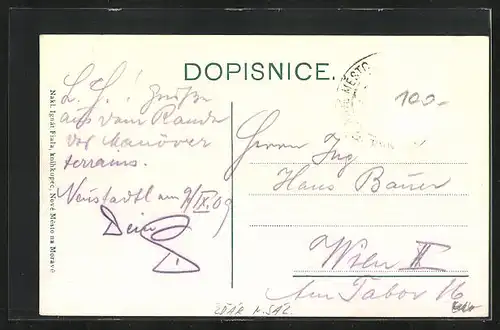 DOPISNICE.
MĚSTO
100.-
L. H.! Grüße
aus dem Rande
des Manöver
terrains.
Neustadtl am 9/IX.09
Dein
Herrn Ing
Hans Bauer
Wien II
Am Tabor 16
Nakl. Ignát Fiala, knihkupec, Nové Město na Moravě
ŽĎÁR N. SÁZ.